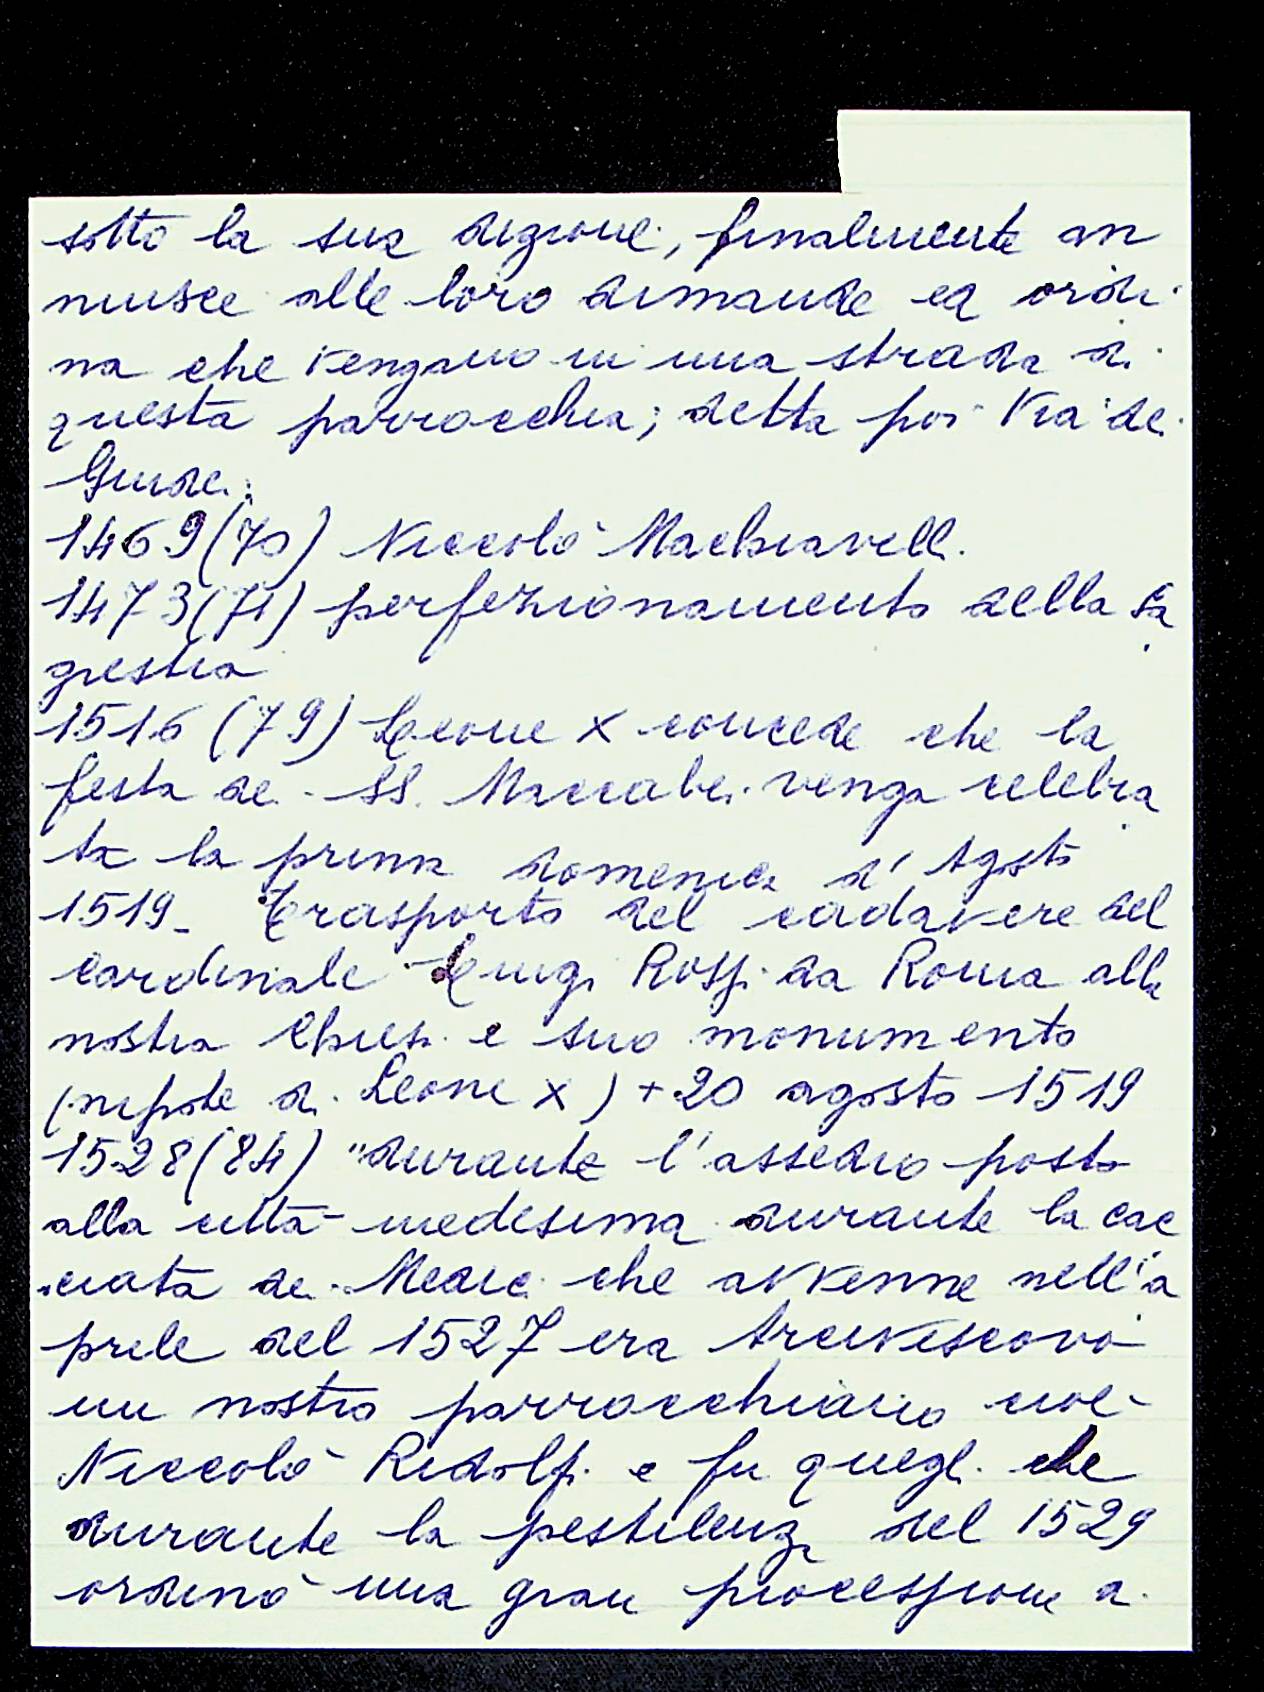 sotto la sua dizione, finalmente an
nuisce alle loro dimande ed ordi
na che vengano in una strada di
questa parrocchia; detta poi Via de
Giudei.
1469(70) Niccolò Machiavelli.
1473(71) perfezionamento della Sa
grestia
1516 (79) Leone X concede che la
festa dei SS. Maccabei venga celebra
ta la prima domenica d'Agosto
1519_ Trasporto del cadavere del
Cardinale Luigi Rossi da Roma alla
nostra Chiesa e suo monumento
(nipote di Leone X) + 20 agosto 1519
1528(84) "durante l'assedio posto
alla città medesima durante la cac
ciata dei Medici che avvenne nell'a
prile del 1527 era Arcivescovo
un nostro parrocchiano cioè
Niccolò Ridolfi e fu quegli che
durante la pestilenza del 1529
ordinò una gran processione a